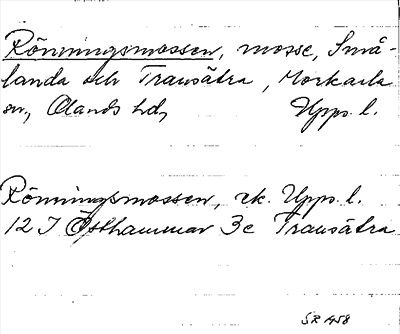 Rönningsmossen, mosse, Små-
landa och Transätra, Morkarla
sn, Olands hd, Upps. l.
Rönningsmossen, ek. Upps. l.
12 I Östhammar 3c Transätra
SR 1958